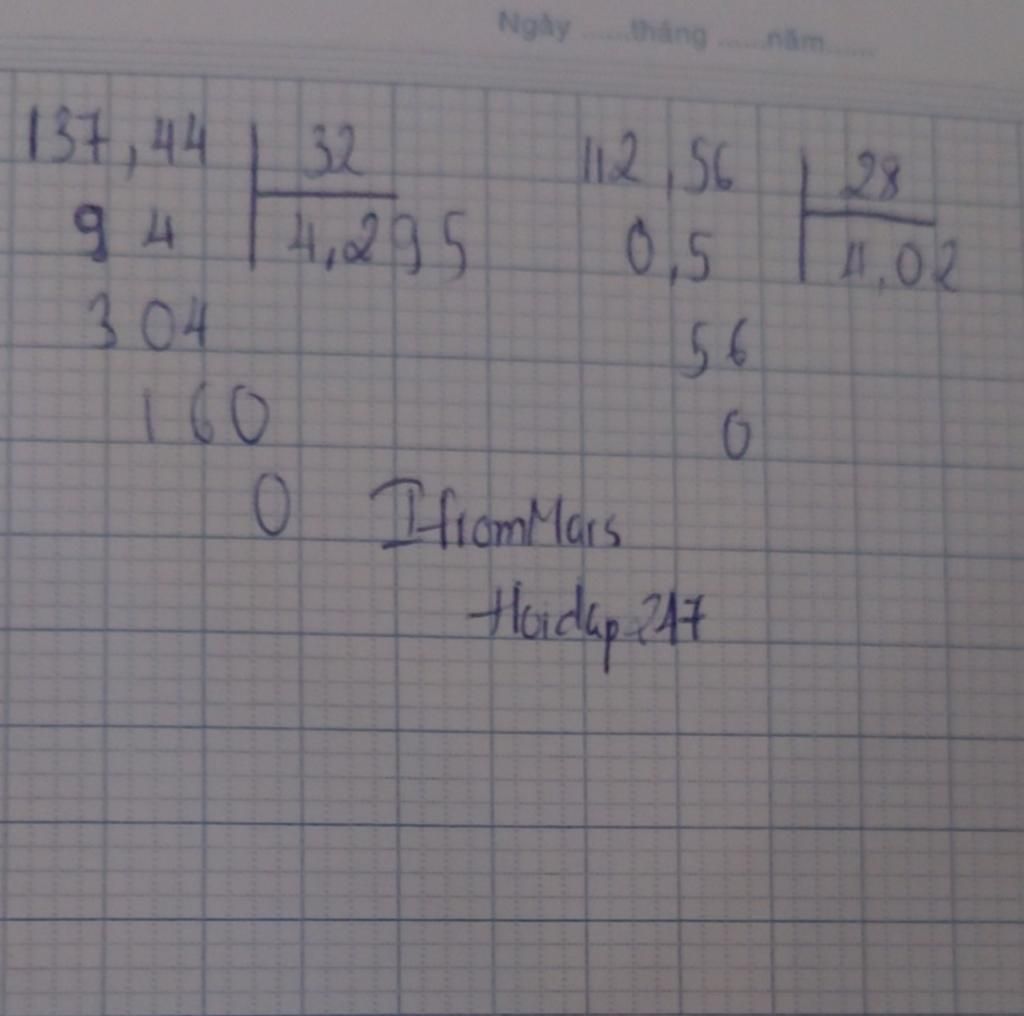 Ngày ......tháng ......năm......
137,44 32
9 4 4,295
304
160
0
112,56 28
0,5 4,02
56
0
IfromMars
Hoidap247